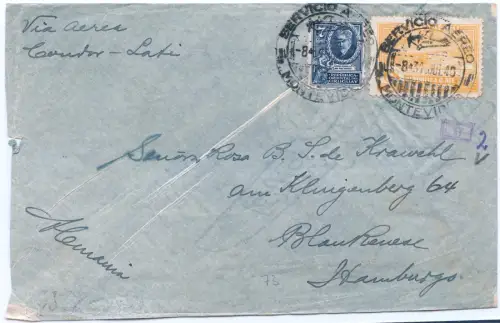 Via aerea
Condor-Lati
SERVICIO AEREO
MONTEVIDEO
SERVICIO AEREO
MONTEVIDEO
2
Señora Rosa B. S. de Krawehl
am Klingenberg 64
Blankenese
Hamburgo
Alemania
73